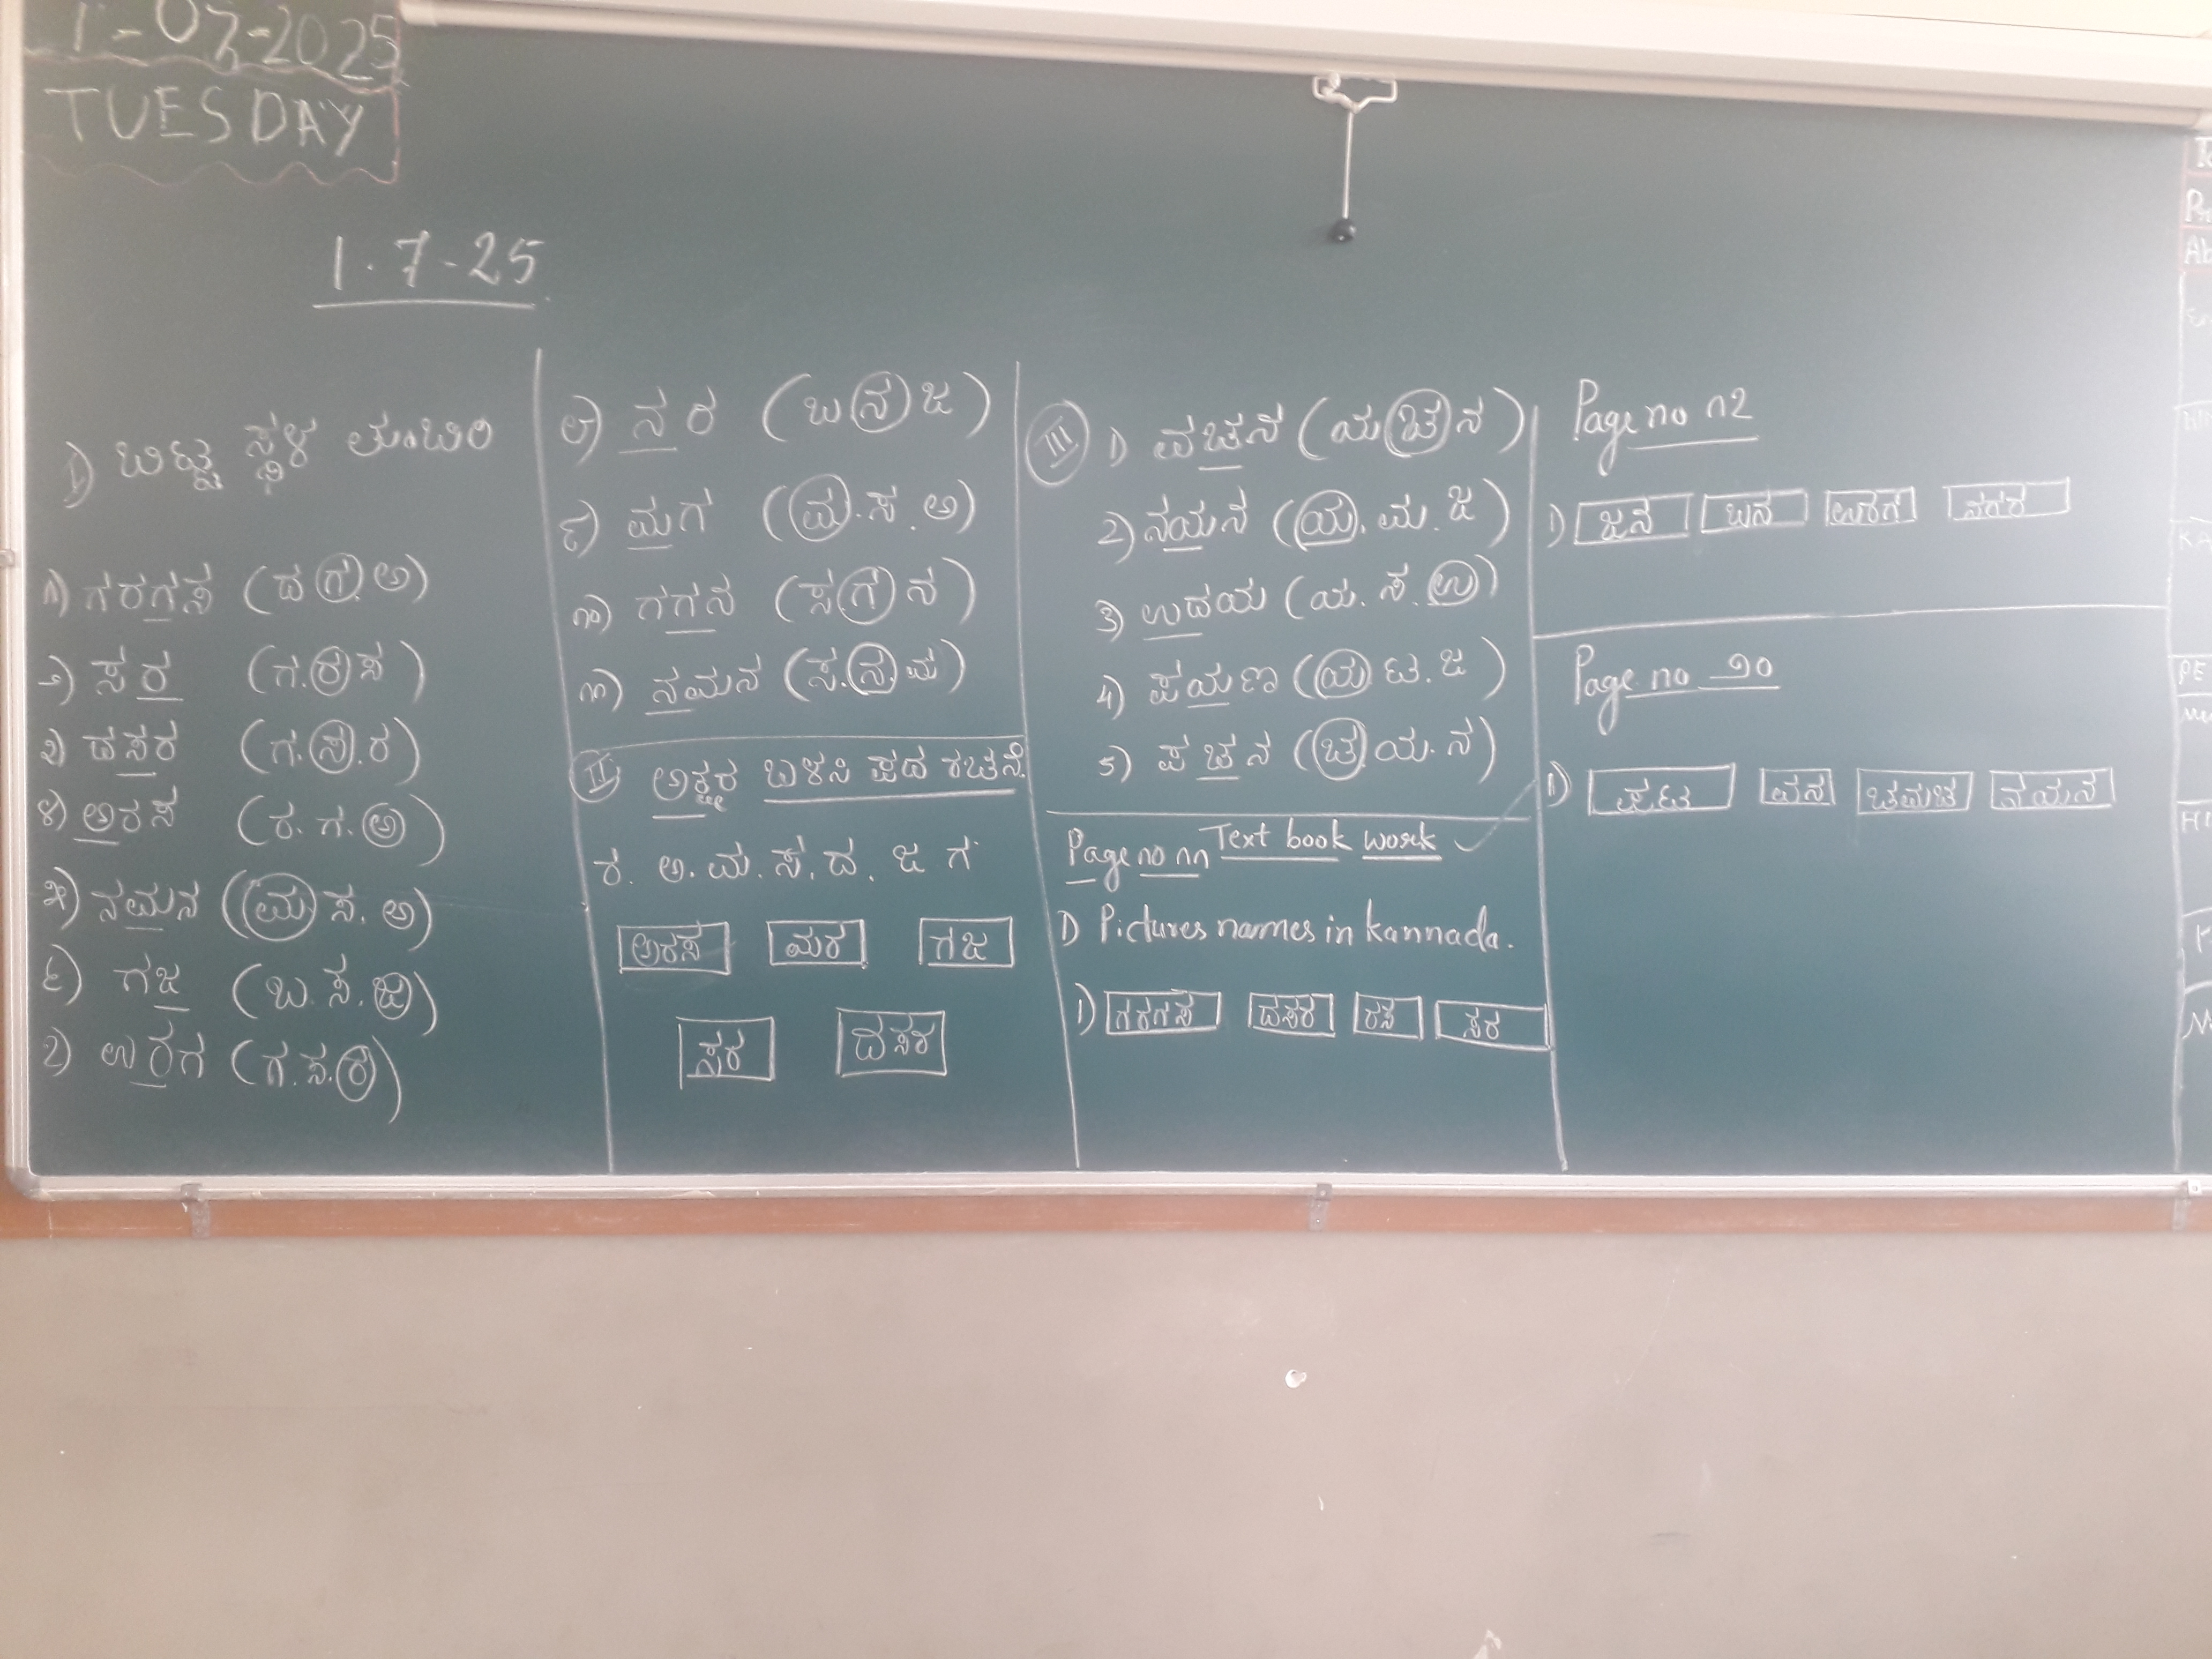 1-07-2025
TUESDAY
1.7-25
I) ಬಿಟ್ಟ ಸ್ಥಳ ತುಂಬಿರಿ
೧) ಗರಗಸ (ದ ಗ. ಅ)
೨) ಸರ (ಗ. ರ ಸ)
೩) ದಸರ (ಗ. ಸ. ರ)
೪) ಅರಸ (ರ. ಗ. ಅ)
೫) ನಮನ (ಮ ಸ. ಅ)
೬) ಗಜ (ಬ. ಸ. ಜ)
೭) ಉರಗ (ಗ. ಸ. ರ)
೮) ನರ (ಬ ನ ಜ)
೯) ಮಗ (ಮ. ಸ. ಅ)
೧೦) ಗಗನ (ಸ ಗ ನ)
೧೧) ನಮನ (ಸ. ನ. ಮ)
II) ಅಕ್ಷರ ಬಳಸಿ ಪದ ರಚನೆ.
ರ. ಅ. ಮ. ಸ. ದ. ಜ ಗ
ಅರಸ ಮರ ಗಜ
ಸರ ದಸರ
III 1) ವಚನ (ಯ ಚ ನ)
2) ನಯನ (ಯ. ಮ. ಜ)
3) ಉದಯ (ಯ. ಸ. ಉ)
4) ಪಯಣ (ಯ ಟ. ಜ)
5) ಪಚನ (ಚ. ಯ. ನ)
Page no ೧೧ Text book work
1) Pictures names in kannada.
1) ಗರಗಸ ದಸರ ರಸ ಸರ
Page no ೧2
1) ಜನ ಬನ ಉರಗ ನಗರ
Page no ೨೦
1) ಪಟ ವನ ಚಮಚ ನಯನ